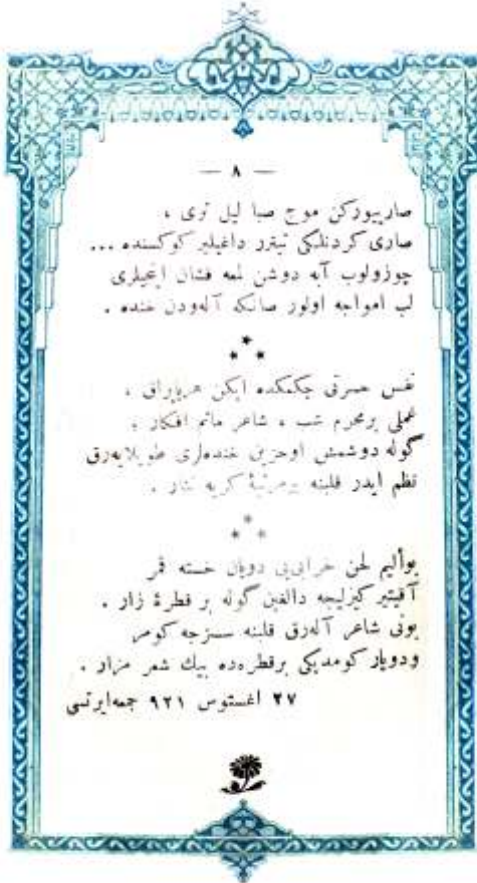 — ٨ —
صاريیوركن موج صبا لیل تری ،
صاری كردنلكی تیترر داغیلیر كوكسنده ...
چوزولوب آبه دوشن لمعه فشان اینجیلری
لب امواجه اولور صانكه آلهودن خنده .
نفس حسرتی چكمكده ایكن هر یاپراق ،
غملی بر محرم شب ، شاعر ماتم افكار ،
كوله دوشمش او حزین خندهلری طوپلایهرق
نظم ایدر قلبنه بر مرثیهٔ كریه نثار .
بو ألیم لحن خرابی‌یی دویان خسته قمر
آقیتیر كیزلیجه دالغین كوله بر قطرهٔ زار .
بونی شاعر آلهرق قلبنه سسزجه كومر
و دویار كومدیكی بر قطرهده بیك شعر مزار .
٢٧ اغستوس ٩٢١ جمعه‌ایرتسی